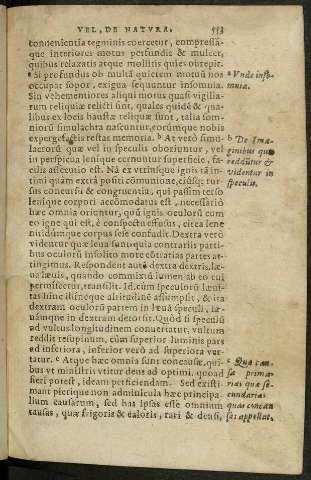 VEL, DE NATVRA. 553
conuenientia tegminis coercetur, compressa-
que interiores motus perfundit & mulcet,
quibus relaxatis atque mollitis quies obrepit.
a Si profundus ob multã quietem motuũ nos oc-
cupat sopor, exigua sequuntur insomnia.
Sin vehementiores aliqui motus quasi vigilia-
rum reliquiæ relicti sunt, quales quidẽ & qua-
libus ex locis haustæ reliquiæ sunt, talia som-
niorũ simulachra nascuntur, eorũmque nobis
expergefactis restat memoria. b At verò simu-
lacrorũ quæ vel in speculis oboriuntur, vel
in perspicua lenique cernuntur superficie, fa-
cilis assecutio est. Nã ex vtrinsque ignis tã in-
timi quàm extrà positi cõmunione, eiúsque rur-
sus concursu & congruentia, qui passim terso
lenique corpori accõmodatus est, necessariò
hæc omnia oriuntur, quũ ignis oculorũ cum
eo igne qui est, è conspectu effusus, circa lene
nitidũmque corpus sese confudit. Dextra verò
videntur quæ læua sunt: quia contrariis parti-
bus oculorũ insolito more cõtrarias partes at-
tingimus. Respondent autẽ dextra dextris, læ-
ua læuis, quando commixtũ lumen ab eo cui
permiscetur, transilit. Id, cum speculorũ læui-
tas hinc illincque altitudinẽ assumpsit, & ita
dextram oculorũ partem in læuã speculi, læ-
uamque in dextram detorsit. Quòd si speculũ
ad vultus longitudinem conuertatur, vultum
reddit resupinum, cũm superior luminis pars
ad inferiora, inferior verò ad superiora ver-
tatur. c Atque hæc omnia sunt concausæ, qui-
bus vt ministris vtitur deus ad optimi, quoad
fieri potest, ideam perficiendam. Sed existi-
mant plerique non adminicula hæc principa-
lium causarum, sed has ipsas esse omnium
causas, quæ frigoris & caloris, rari & densi,
a Vnde inso-
mnia.
b De Ima-
ginibus quæ
reddũtur &
videntur in
speculis.
c Quæ cau-
sæ prima-
riæ: quæ se-
cundariæ:
quas concau
sas appellat.